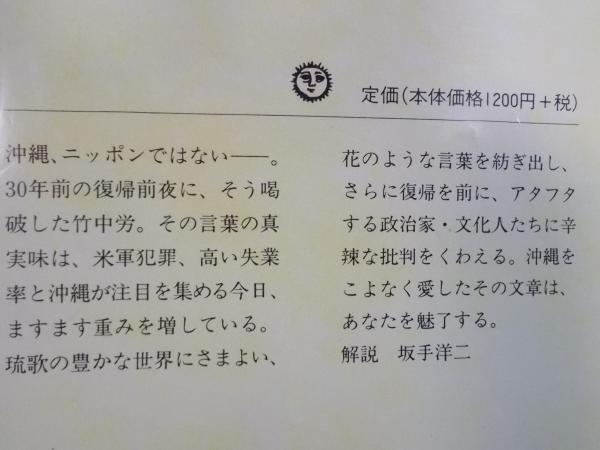 定価(本体価格1200円+税)
沖縄、ニッポンではない――。
30年前の復帰前夜に、そう喝
破した竹中労。その言葉の真
実味は、米軍犯罪、高い失業
率と沖縄が注目を集める今日、
ますます重みを増している。
琉歌の豊かな世界にさまよい、
花のような言葉を紡ぎ出し、
さらに復帰を前に、アタフタ
する政治家・文化人たちに辛
辣な批判をくわえる。沖縄を
こよなく愛したその文章は、
あなたを魅了する。
解説　坂手洋二